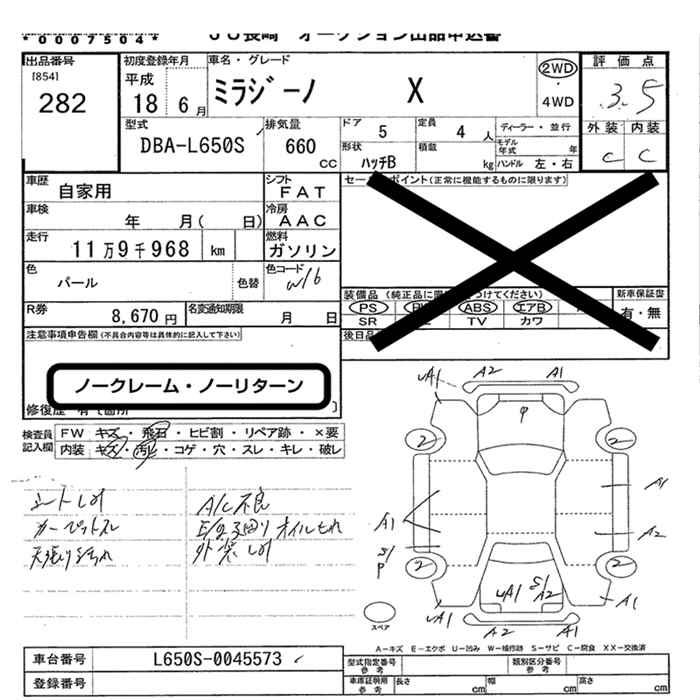 *0007504*
JU長崎 オークション出品申込書
出品番号
[854]
282
初度登録年月
平成
18 6 月
車名・グレード
ミラジーノ X
2WD
・
4WD
評価点
3.5
外装 内装
C C
型式
DBA-L650S
排気量
660
CC
ドア
5
定員
4 人
ディーラー・並行
形状
ハッチB
積載
kg
モデル年式 年
ハンドル 左・右
車歴
自家用
シフト
FAT
車検
年 月( 日)
冷房
AAC
走行
11万9千968 km
燃料
ガソリン
色
パール
色替
色コード
W16
R券
8,670 円
名変通知期限
月 日
セールスポイント(正常に機能するものに限ります)
装備品
PS ABS エアB
SR TV カワ
新車保証書
有・無
後日品
注意事項申告欄(不具合内容等は具体的に記入して下さい)
ノークレーム・ノーリターン
修復歴
検査員
記入欄
FW キズ・飛石・ヒビ割・リペア跡・×要
内装 キズ・汚れ・コゲ・穴・スレ・キレ・破レ
シートしみ
A/C不良
天張り汚れ
外装しみ
A2 A1
UA1
P
2 2
A1
A1
A2
S1
P
2 2
UA1 S1 A2
A1
UA1
A2 A1
スペア
A-キズ E-エクボ U-凹み W-補修跡 S-サビ C-腐食 XX-交換済
車台番号
L650S-0045573
登録番号
型式指定番号
参考
類別区分番号
参考
車庫証明用
参考
長さ cm
幅 cm
高さ cm